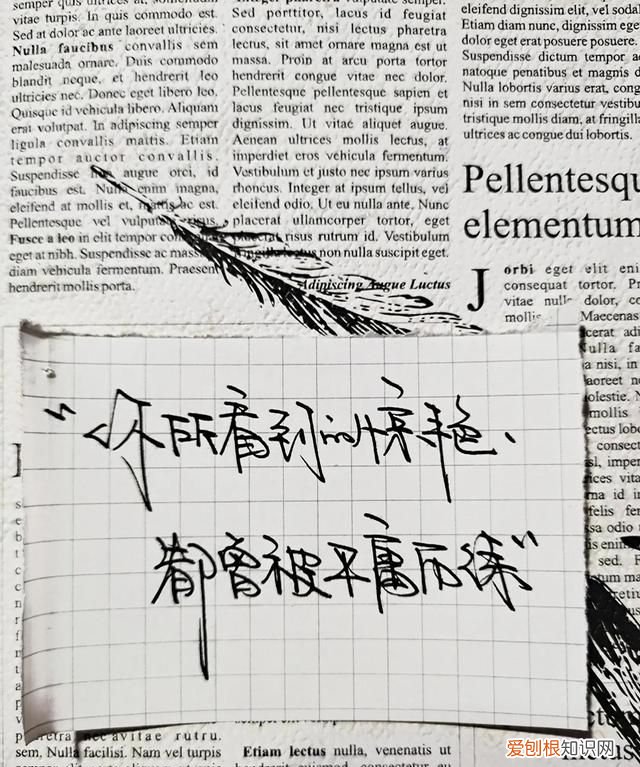 semper quis ultrices at, somendum
vitae turpis. In quis commodo est.
Sed at dolor ac ante laoreet ultricies.
Nulla faucibus convallis sem
malesuada ornare. Duis commodo
blandit neque, et hendrerit leo
ultricies nec. Donec eget libero leo.
Quisque id vehicula libero. Aliquam
erat volutpat. In adipiscing semper
ligula convallis mattis. Etiam
tempor auctor convallis.
Suspendisse non augue orci, id
faucibus est. Nulla enim magna,
eleifend at mollis et, mattis ac est.
Pellentesque vel vulputate risus.
Fusce a leo in elit tempor
eget at nibh. Suspendisse ac massa
diam vehicula fermentum. Praesent
hendrerit mollis porta.
Sed porttitor, lacus id feugiat
consectetur, nisi lectus pharetra
lectus, sit amet ornare magna est ut
massa. Proin at arcu porta tortor
hendrerit congue vitae nec dolor.
Pellentesque pellentesque sapien et
lacus feugiat nec tristique ipsum
dignissim. Ut vitae aliquet augue.
Aenean ultrices mollis lectus, at
imperdiet eros vehicula fermentum.
Vestibulum et justo nec ipsum varius
rhoncus. Integer at ipsum tellus, vel
eleifend odio. Ut eu nulla ante. Nunc
placerat ullamcorper tortor, eget
placerat risus rutrum id. Vestibulum
fringilla lectus non nulla suscipit eget.
Adipiscing Augue Luctus
eleifend dignissim elit, vel soda
Etiam diam nunc, dignissim ege
dolor eget erat posuere posuere.
Suspendisse dictum tempor ac
natoque penatibus et magnis d
Nulla lobortis varius erat, cong
nisi in sem consectetur vestibul
tristique mollis diam, at fringilla
ultrices ac congue dui lobortis.
Pellentesqu
elementum
Jorbi eget elit eni
consequat tortor. Pr
vitae null dolor, co
mollis Maecenas
“你所看到的惊艳、
都曾被平庸历练”
vitae rutru.
sem. Nulla facilisi. Nam vel turpis
Etiam lectus nulla, venenatis ut
爱刨根知识网